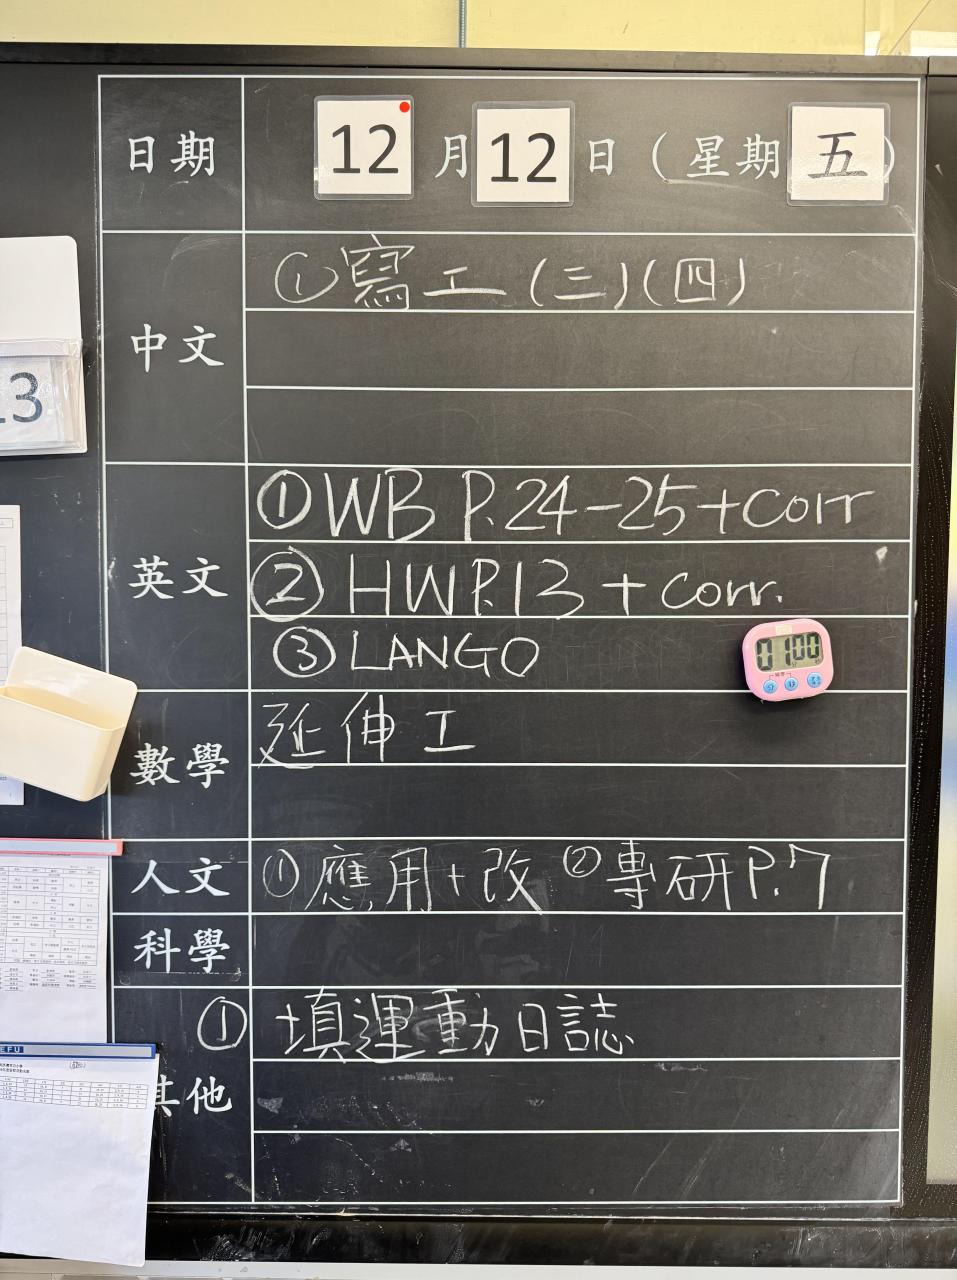 日期 12 月 12 日 (星期 五)
中文 ①寫工(三)(四)
英文 ①WB P.24-25+corr
②HWP.13 + corr.
③LANGO
01 00
數學 延伸工
人文 ①應用+改 ②專研P.7
科學
其他 ①填運動日誌
13
EFU